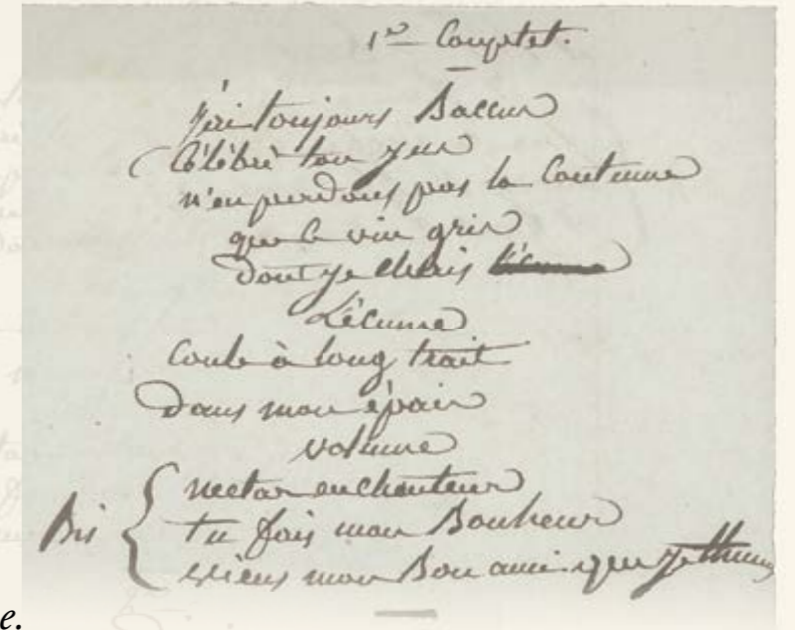 1er Couplet.
j'ai toujours Baccus
Célébré ton jus
n'en perdons pas la Coutume
que le vin gris
dont je cheris l'écume
L'écume
Coule à long trait
dans mon épais
volume
nectar enchanteur
Bis { tu fais mon Bonheur
viens mon Bon ami que je t'hume
e.